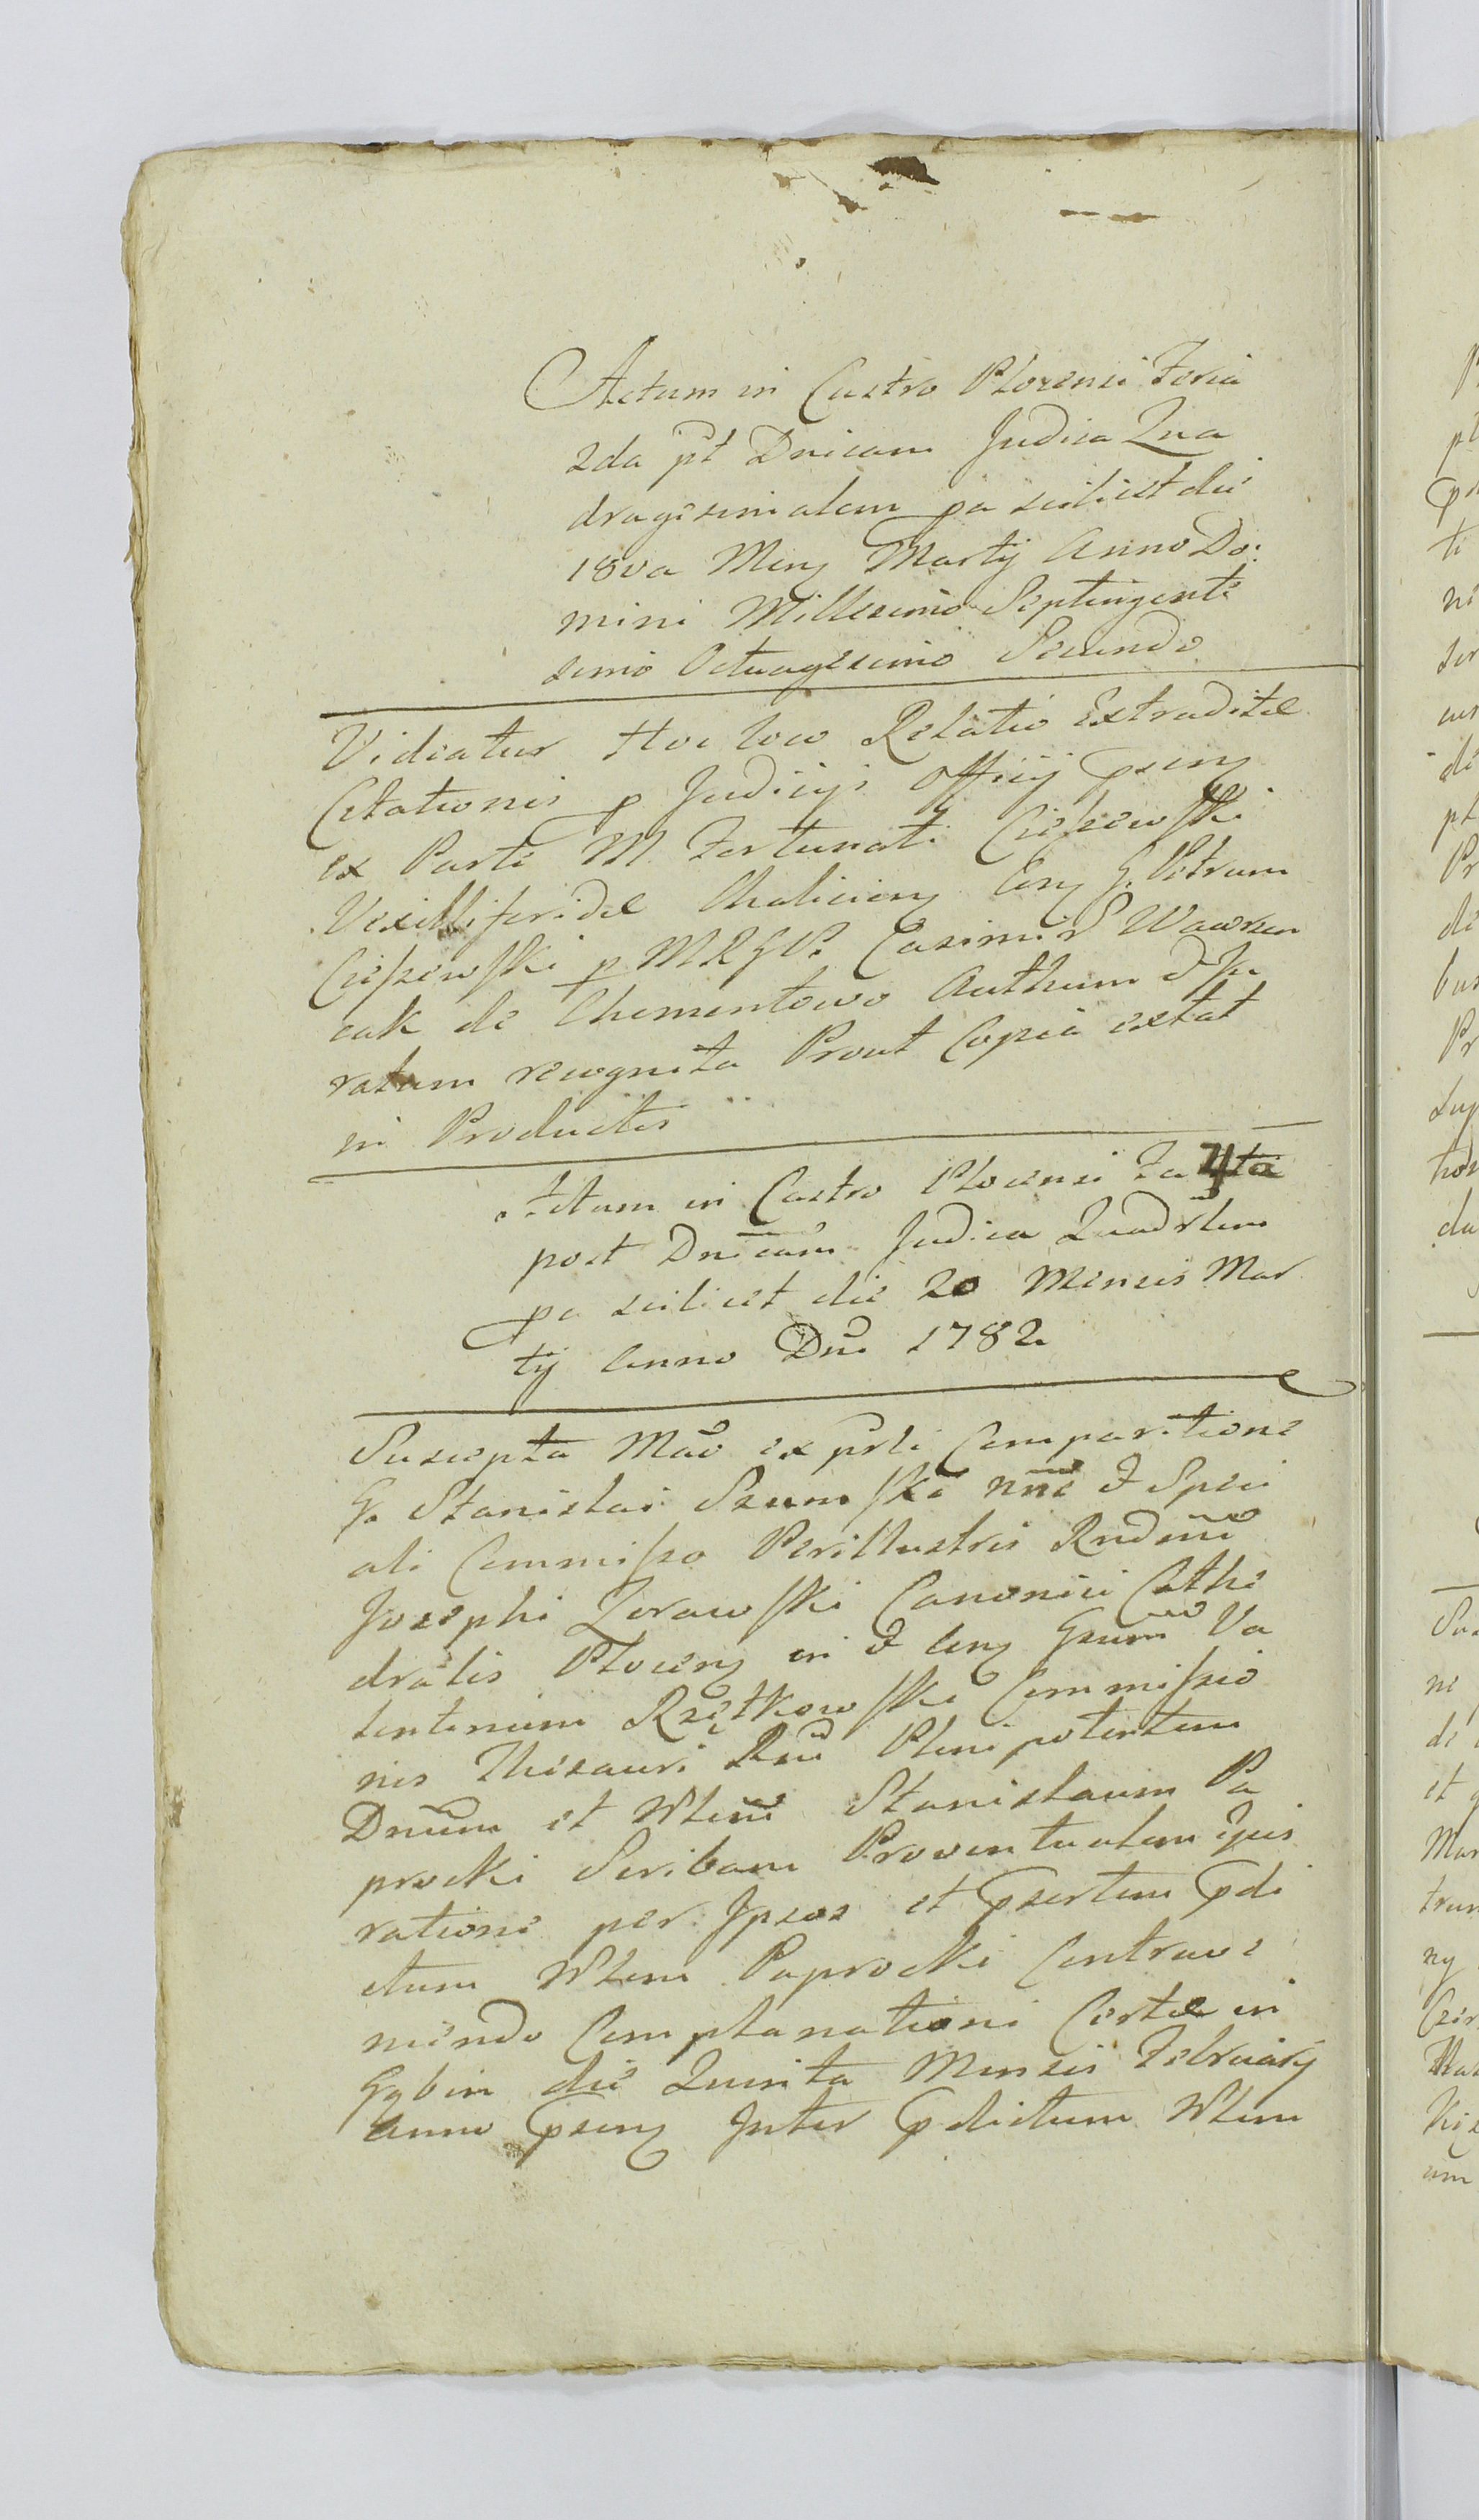 Actum in Castro Plocensi Feria
2da pt Dnicam Judica Qua
dragesimalem pa scilicet die
18va Mens Martij Anno Do:
mini Millesimo Septingente
simo Octuagesimo Secundo
Videatur Hoc loco Relatio Extraditæ
Citationis p Judicijs Officij psens
ex Parte M Fortunati Cieszewski
Vexilliferidæ Chaliciens Cens G. Petrum
Cieszewski p MRGVP. Casimir Wawrzen
cak de Chementowo Authum & Ju
ratum recognita Prout Copia extat
in Productis
Actum in Castro Plocensi Fa 4ta
post Dnicam Judica Quadrlem
pa scilicet die 20 Mensis Mar
tij Anno Dni 1782
Suscepta Mao ex prli Comparitione
G. Stanislai Szumski nne & Speci
ali Commisso Perillustris Rndmi
Josephi Zorawski Canonici Cathe
dralis Plocens in & Cens Gsum Va
lentinum Rzętkowski Commissio
nis Thesauri Rni Plenipotentem
Dnum et Nlem Stanislaum Pa
procki Scribam Proventualem ejus
ratione per Ipsos et psertim pdi
ctum Nlem Paprocki Contrave
niendo Complanationi Certæ in
Gąbin die Quinta Mensis Februarij
Anno psens Inter pdictum Nlem